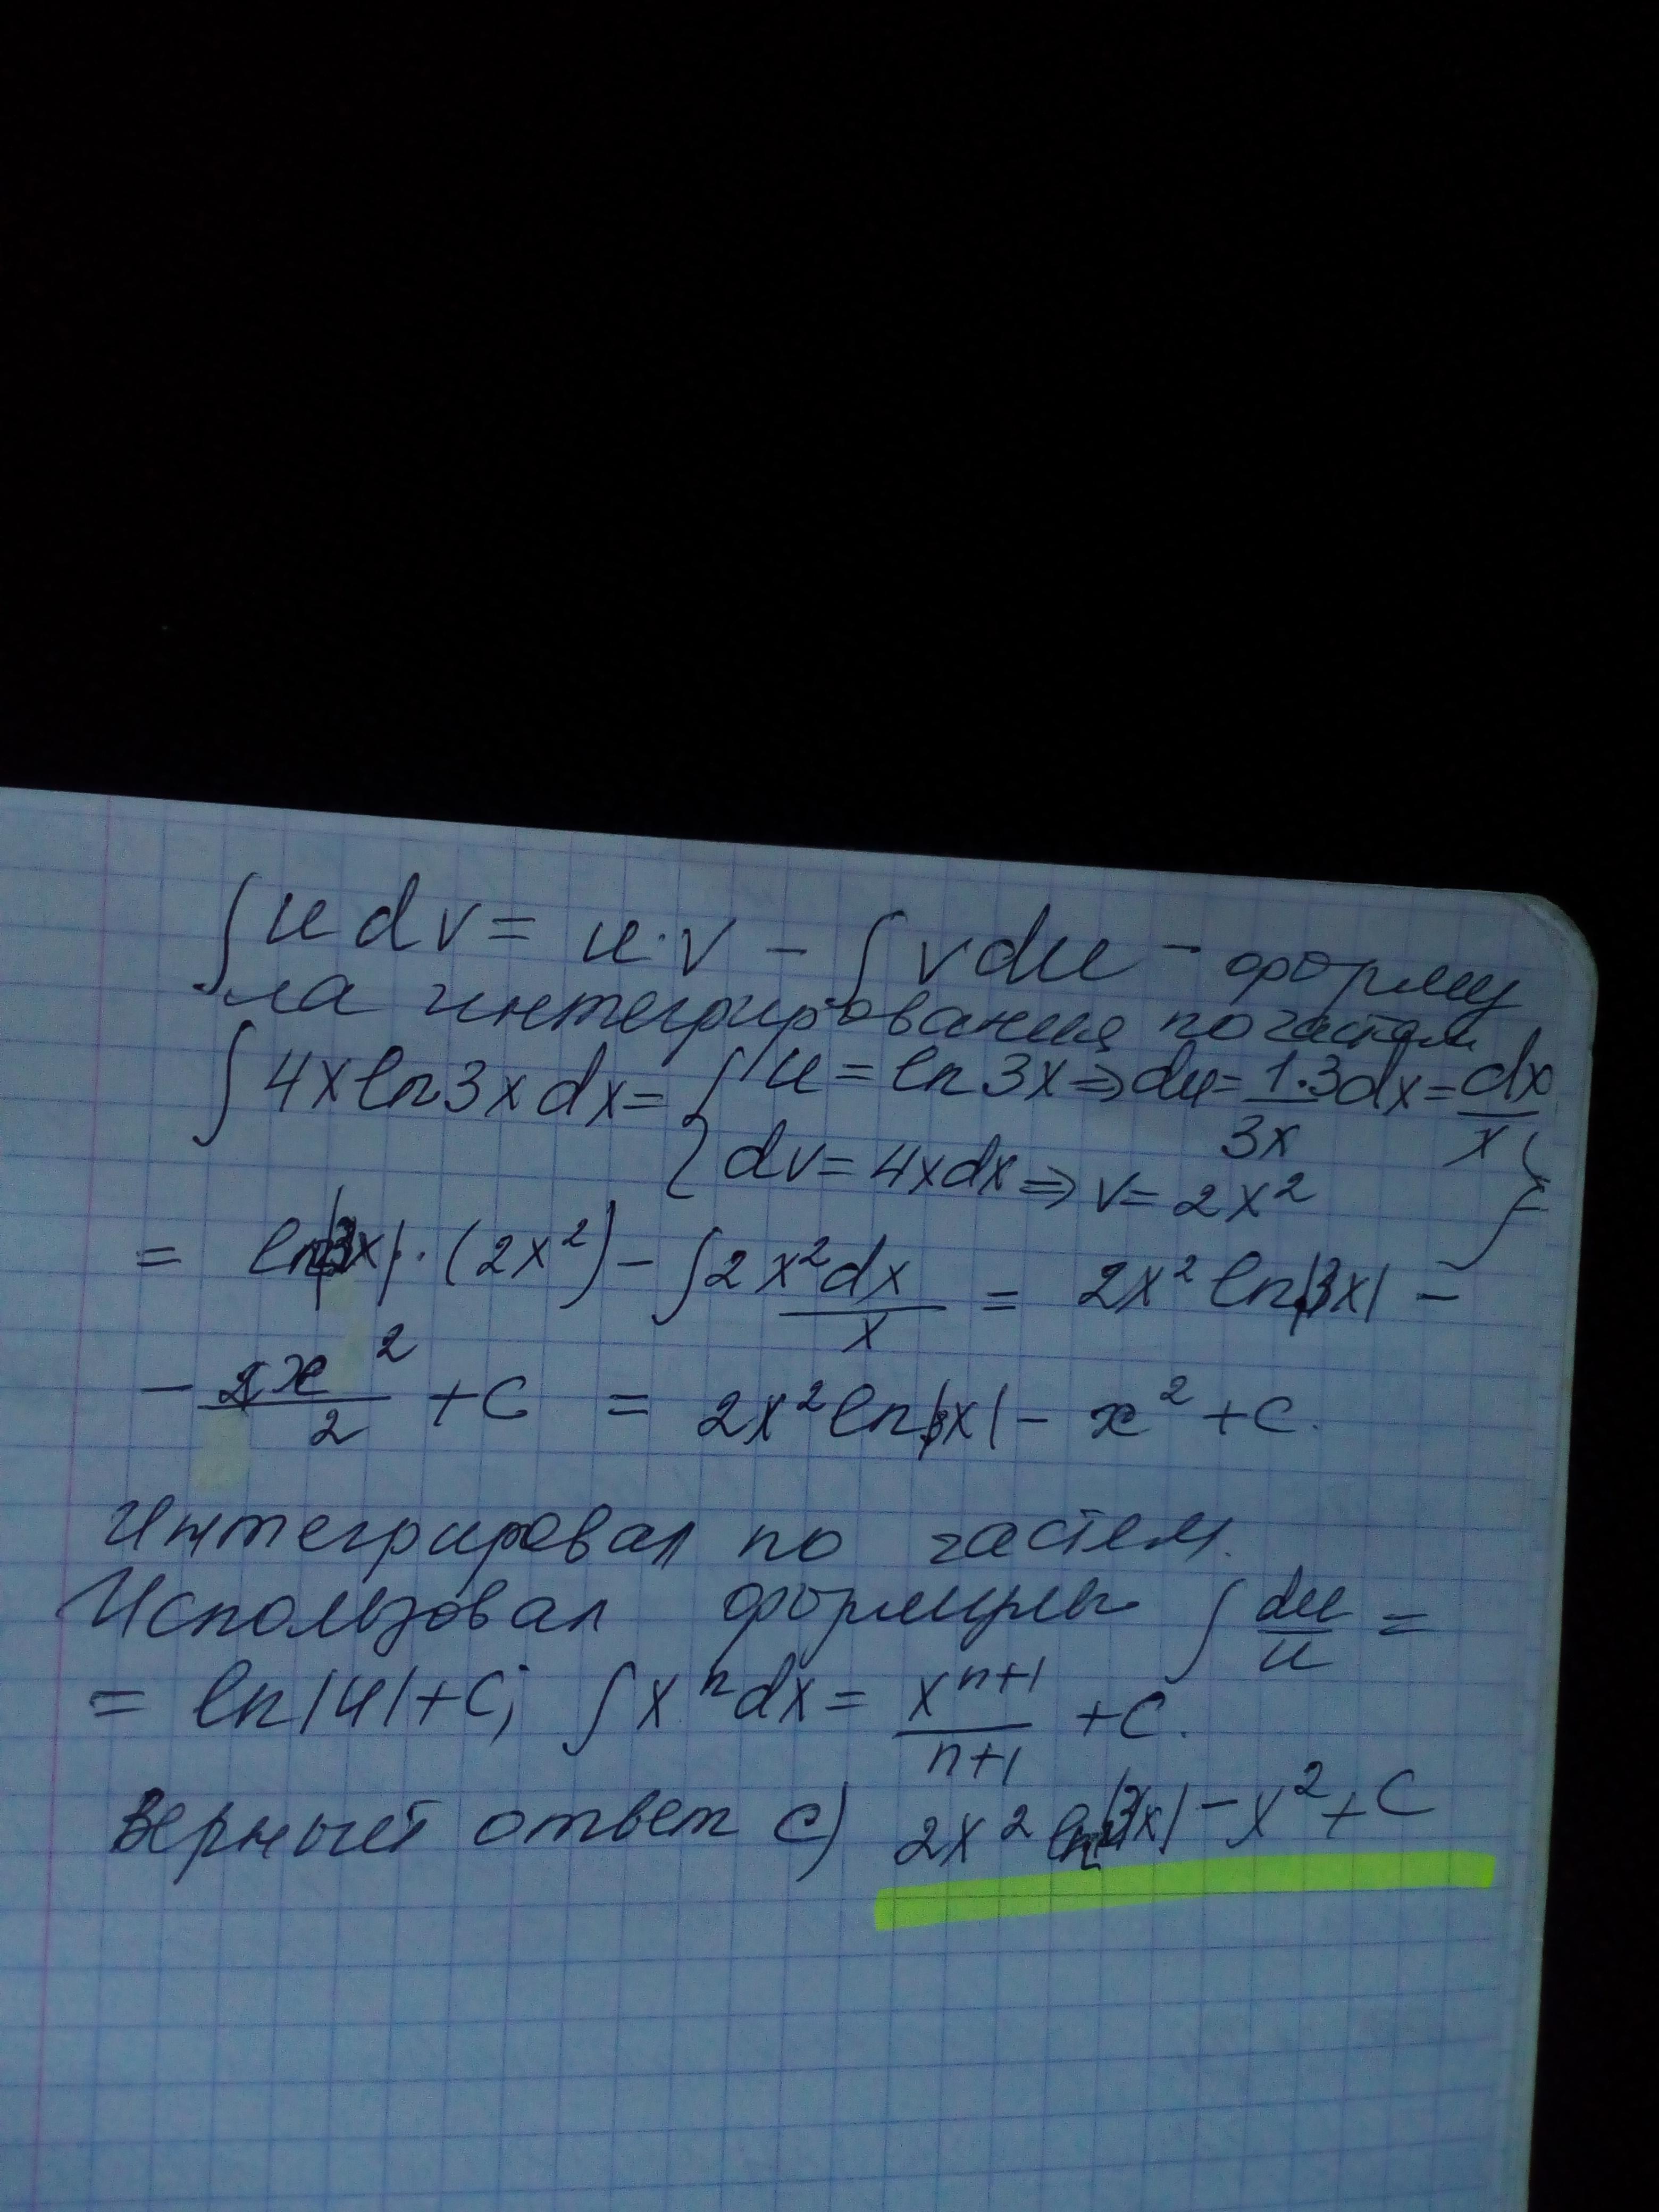 ∫ u dv = u·v − ∫ v du − форму
ла интегрирования по частям
∫ 4x ln 3x dx = { u = ln 3x ⇒ du = 1·3dx/3x = dx/x
dv = 4x dx ⇒ v = 2x² } =
= ln|3x|·(2x²) − ∫ 2x²dx/x = 2x² ln|3x| −
− 2x²/2 + C = 2x² ln|3x| − x² + C.
Интегрировал по частям.
Использовал формулы ∫ du/u =
= ln|u| + C; ∫ xⁿ dx = xⁿ⁺¹/n+1 + C.
Верный ответ c) 2x² ln|3x| − x² + C